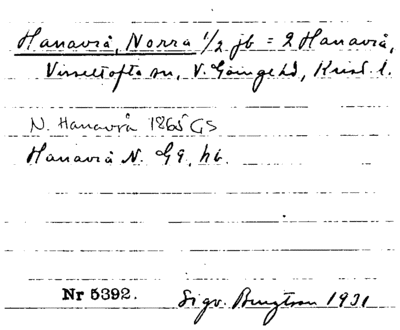 Hanavrå, Norra 1/2 jb = 2 Hanavrå,
Visseltofta sn, V. Göinge hd, Krist l.
N. Hanavrå 1865 GS
Hanavrå N. G9, hb.
Nr 5392.
Sigv. Bengtson 1931